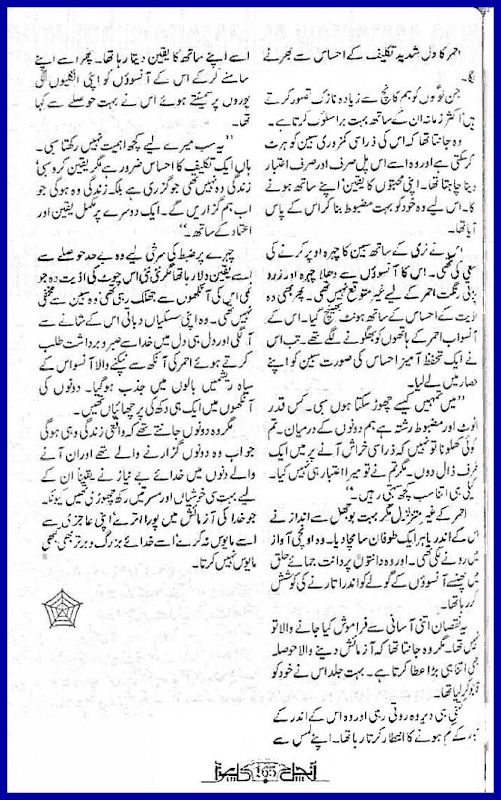 احمر کا دل شدید تکلیف کے احساس سے بھرنے
لگا۔
جن لوگوں کو ہم کانچ سے زیادہ نازک تصور کرتے
ہیں اکثر زمانہ ان کے ساتھ بہت برا سلوک کرتا ہے۔
وہ جانتا تھا کہ اس کی ذرا سی کمزوری سبین کو ہرٹ
کر سکتی ہے اور وہ اسے اس پل صرف اور صرف اعتبار
دینا چاہتا تھا۔ اپنی محبتوں کا یقین اپنے ساتھ ہونے
کا۔ اس لیے وہ خود کو بہت مضبوط بنا کر اس کے پاس
آیا تھا۔
اس نے نرمی کے ساتھ سبین کا چہرہ اوپر کرنے کی
سعی کی تھی۔ اس کا آنسوؤں سے دھلا چہرہ اور زرد
پڑتی رنگت احمر کے لیے غیر متوقع نہیں تھی۔ پھر بھی وہ
اذیت کے احساس کے ساتھ ہونٹ بھینچ گیا۔ اس کے
آنسو اب احمر کے ہاتھوں کو بھگونے لگے تھے۔ تب اس
نے ایک تحفظ آمیز احساس کی صورت سبین کو اپنے
حصار میں لے لیا۔
”میں تمہیں کیسے چھوڑ سکتا ہوں سبی۔ کس قدر
اٹوٹ اور مضبوط رشتہ ہے ہم دونوں کے درمیان۔ تم
کوئی کھلونا تو نہیں کہ ذرا سی خراش آنے پر میں ایک
طرف ڈال دوں۔ مگر تم نے تو میرا اعتبار ہی نہیں کیا۔
اکیلی ہی اتنا سب کچھ سہتی رہیں۔“
احمر کے غیر متزلزل مگر بہت بوجھل سے انداز نے
اس کے اندر باہر ایک طوفان سا مچا دیا۔ وہ اونچی آواز
میں رونے لگی تھی۔ اور وہ دانتوں پر دانت جمائے حلق
میں پھنسے آنسوؤں کے گولے کو اندر اتارنے کی کوشش
کر رہا تھا۔
یہ نقصان اتنی آسانی سے فراموش کیا جانے والا تو
نہیں تھا۔ مگر وہ جانتا تھا کہ آزمائش دینے والا حوصلہ
بھی اتنا ہی بڑا عطا کرتا ہے۔ بہت جلد اس نے خود کو
قابو کر لیا تھا۔
کتنی ہی دیر وہ روتی رہی اور وہ اس کے اندر کے
کم ہونے کا انتظار کرتا رہا تھا۔ اپنے لمس سے
اسے اپنے ساتھ کا یقین دیتا رہا تھا۔ پھر اسے اپنے
سامنے کر کے اس کے آنسوؤں کو اپنی انگلیوں کی
پوروں پر سمیٹتے ہوئے اس نے بہت حوصلے سے کہا
تھا۔
”یہ سب میرے لیے کچھ اہمیت نہیں رکھتا سبی۔
ہاں ایک تکلیف کا احساس ضرور ہے مگر یقین کرو سبی
زندگی وہ نہیں تھی جو گزری ہے بلکہ زندگی وہ ہوگی جو
اب ہم گزاریں گے۔ ایک دوسرے پر مکمل یقین اور
اعتماد کے ساتھ۔“
چہرے پر ضبط کی سرخی لیے وہ بے حد حوصلے سے
اسے یقین دلا رہا تھا مگر نئی نئی اس چوٹ کی اذیت وہ جو
تھی اس کی آنکھوں سے جھلک رہی تھی وہ سبین سے مخفی
نہیں تھی۔ وہ اپنی سسکیاں دباتی اس کے شانے سے
آ لگی اور دل ہی دل میں خدا سے صبر و برداشت طلب
کرتے ہوئے احمر کی آنکھ سے نکلنے والا آنسو اس کے
سیاہ ریشمیں بالوں میں جذب ہو گیا۔ دونوں کی
آنکھوں میں ایک ہی دکھ کی پرچھائیاں تھیں۔
مگر وہ دونوں جانتے تھے کہ واقعی زندگی وہی ہوگی
جو اب وہ دونوں گزارنے والے تھے اور ان آنے
والے دنوں میں خدائے بے نیاز نے یقیناً ان کے
لیے بہت سی خوشیاں اور مسرتیں رکھ چھوڑی تھیں کیونکہ
جو خدا کی آزمائش میں پورا اترے اپنی عاجزی سے
اسے مایوس نہ کرے اسے خدائے بزرگ و برتر بھی کبھی
مایوس نہیں کرتا۔
165